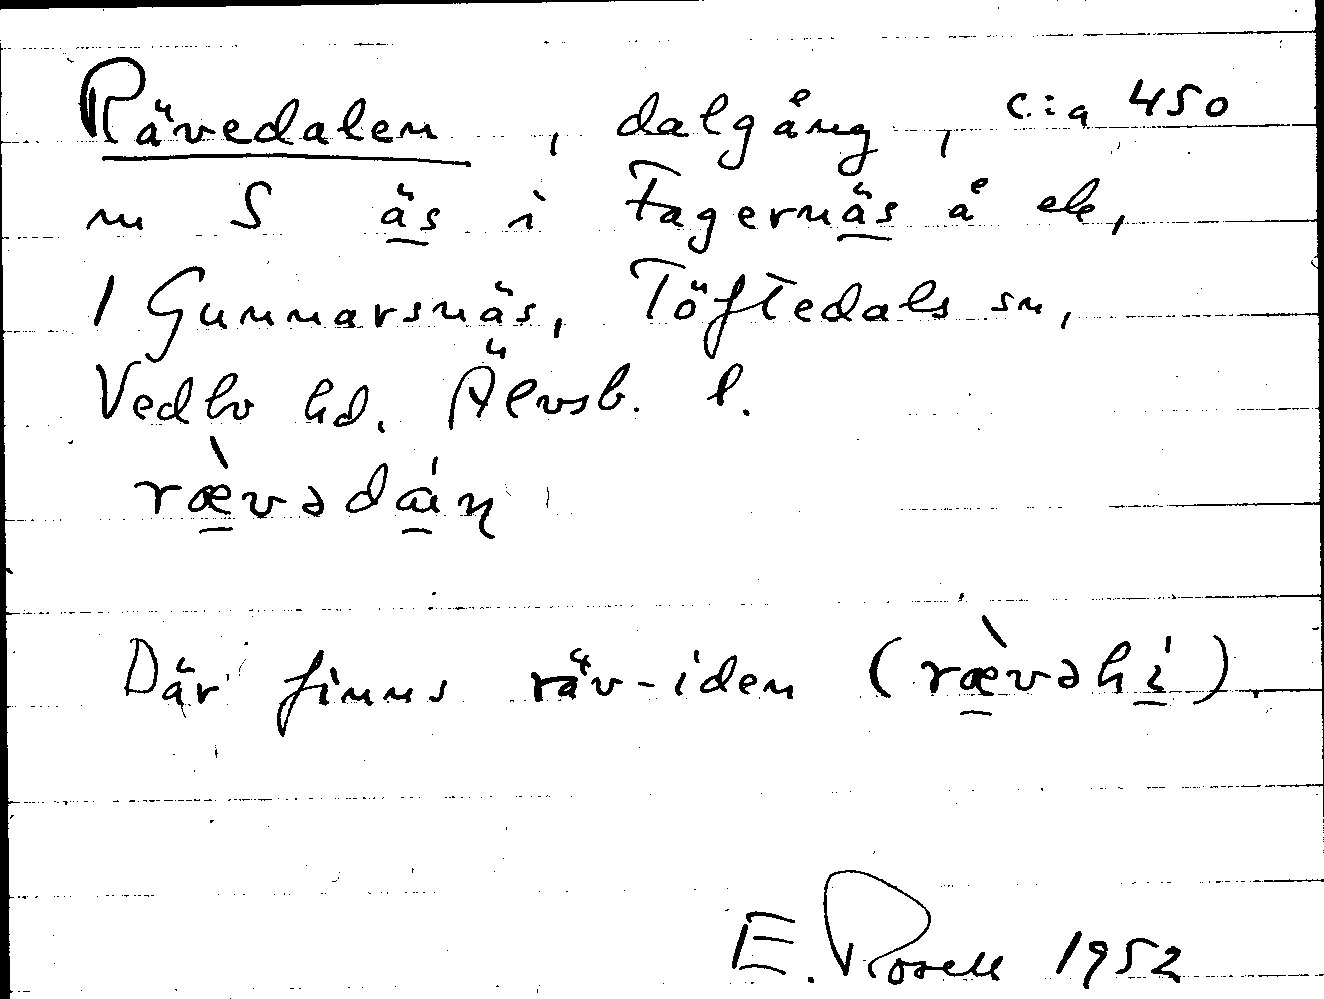 Rävedalen, dalgång, c:a 450
m S äs i Fagernäs å ek,
1 Gunnarsnäs, Töftedals sn,
Vedbo hd. Älvsb. l.
rævədáņ
Där finns räv-iden (rævəhi).
E. Rosell 1952